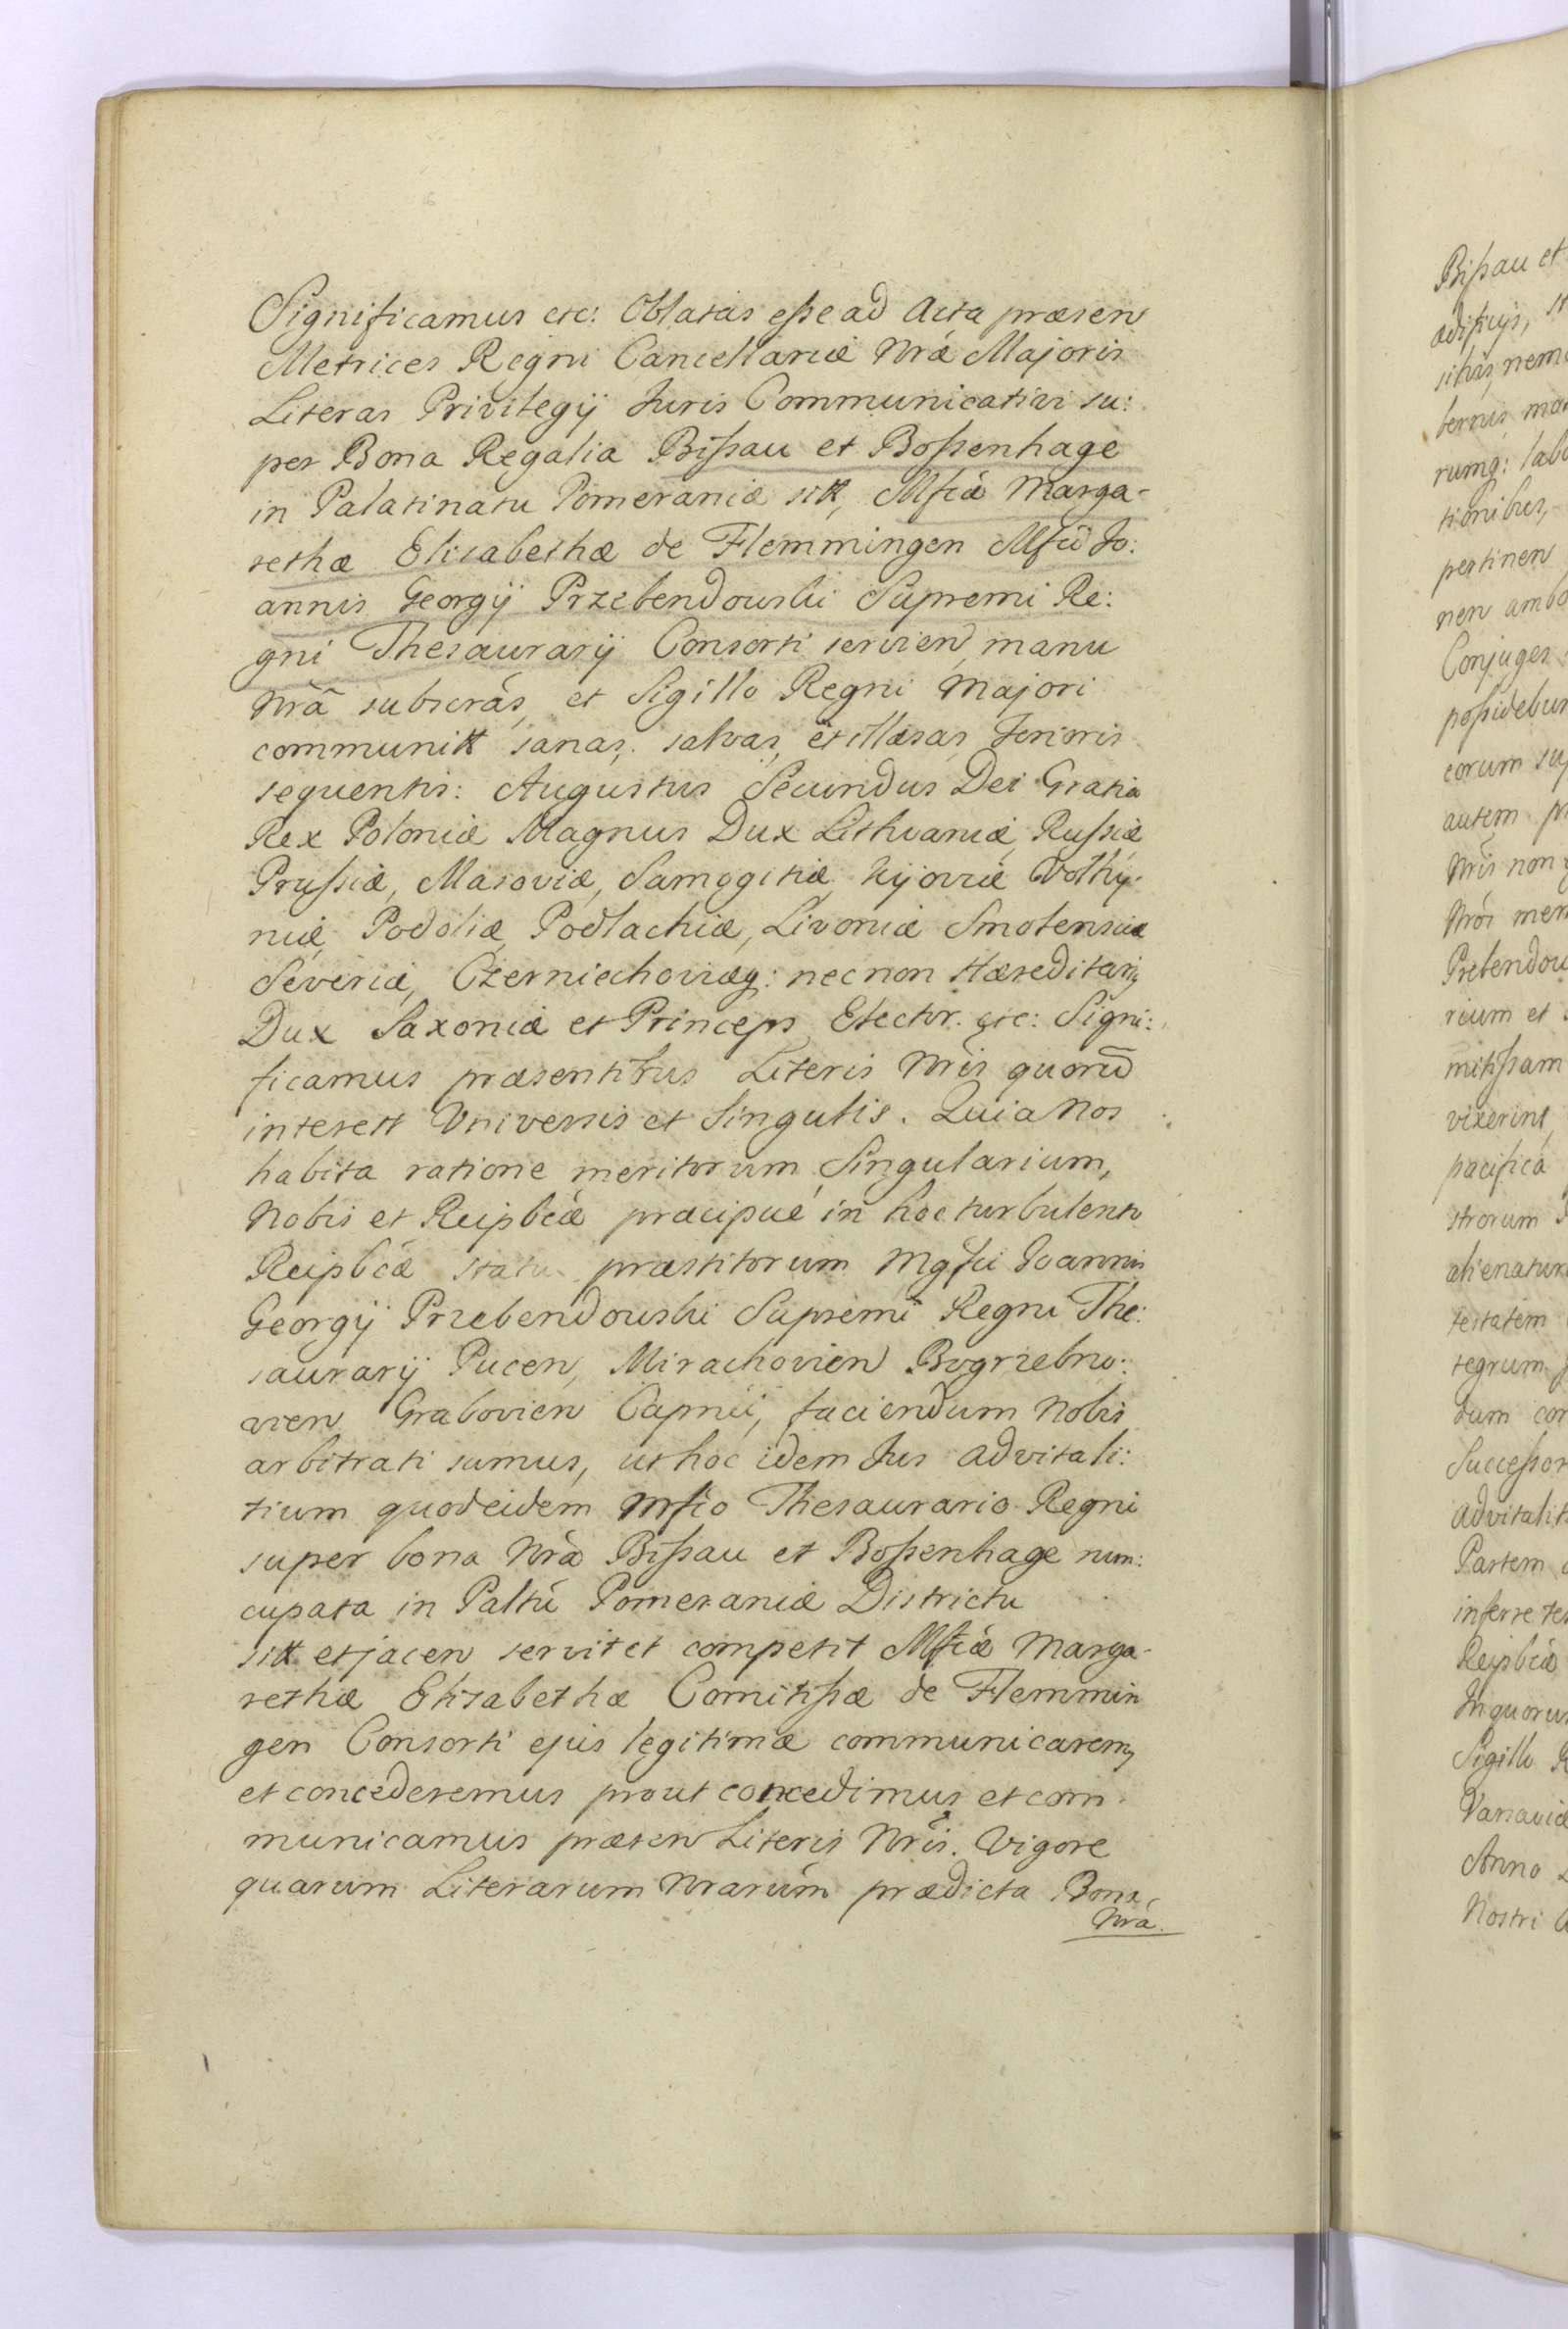 Significamus etc: Oblatas eſse ad Acta præsen
Metrices Regni Cancellariæ Nrǽ Majoris
Literas Privilegij Juris Communicativi su:
per Bona Regalia Biſsau et Boſsenhage
in Palatinatu Pomeraniæ sitt, Mfcæ Marga-
rethæ Elisabethæ de Flemmingen Mfci Jo:
annis Georgij Przebendowski Supremi Re:
gni Thesaurarij Consorti servien, manu
Nrã subscras, et Sigillo Regni Majori
communitt sanas, salvas, et illæsas, tenoris
sequentis: Augustus Secundus Dei Gratia
Rex Poloniæ Magnus Dux Lithvaniæ, Ruſsiæ
Pruſsiæ, Masoviæ, Samogitiæ, Kijoviæ Volhÿ-
niæ, Podoliæ, Podlachiæ, Livoniæ Smolensciæ
Severiæ, Czerniechoviæq: nec non Hæreditariq
Dux Saxoniæ et Princeps Elector. etc: Signi:
ficamus præsentibus Literis Nris quorũ
interest Universis et Singulis. Quia Nos
habita ratione meritorum Singularium,
Nobis et Reipbcæ præcipué in hoc turbulento
Reipbcæ statu præstitorum Mgfci Joannis
Georgij Przebendowski Supremi Regni The:
saurarij Pucen, Mirachovien Bogrzebno:
vien, Grabovien Capnei, faciendum Nobis
arbitrati sumus, ut hoc idem Jus advitali:
tium quod eidem Mfco Thesaurario Regni
super bona Nra Biſsau et Boſsenhage nun:
cupata in Paltu Pomeraniæ Districtu
sitt et jacen servit et competit Mfcæ Marga-
rethæ Elisabethæ Comitiſsæ de Flemmin
gen Consorti ejus legitimæ communicarem9
et concederemus prout concedimus et com-
municamus præsen Literis Nris. Vigore
quarum Literarum Nrarum prædicta Bona
Nra.
Biſsau et
ædificijs,
sitis, nem
bernis
rumq: lab
tionibus,
pertinen
nen amb
Conjuges
poſsidebun
eorum su
autem pr
Nris non
Nrõr mem
Prebendow
rium et
mitiſsam
vixerint,
pacifica
strorum
alienatur
testatem
tegrum
dum con
Succeſsor
Advitalit
Partem
inferre te
Reipbcæ
In quorum
Sigillo R
Varsaviæ
Anno
Nostri